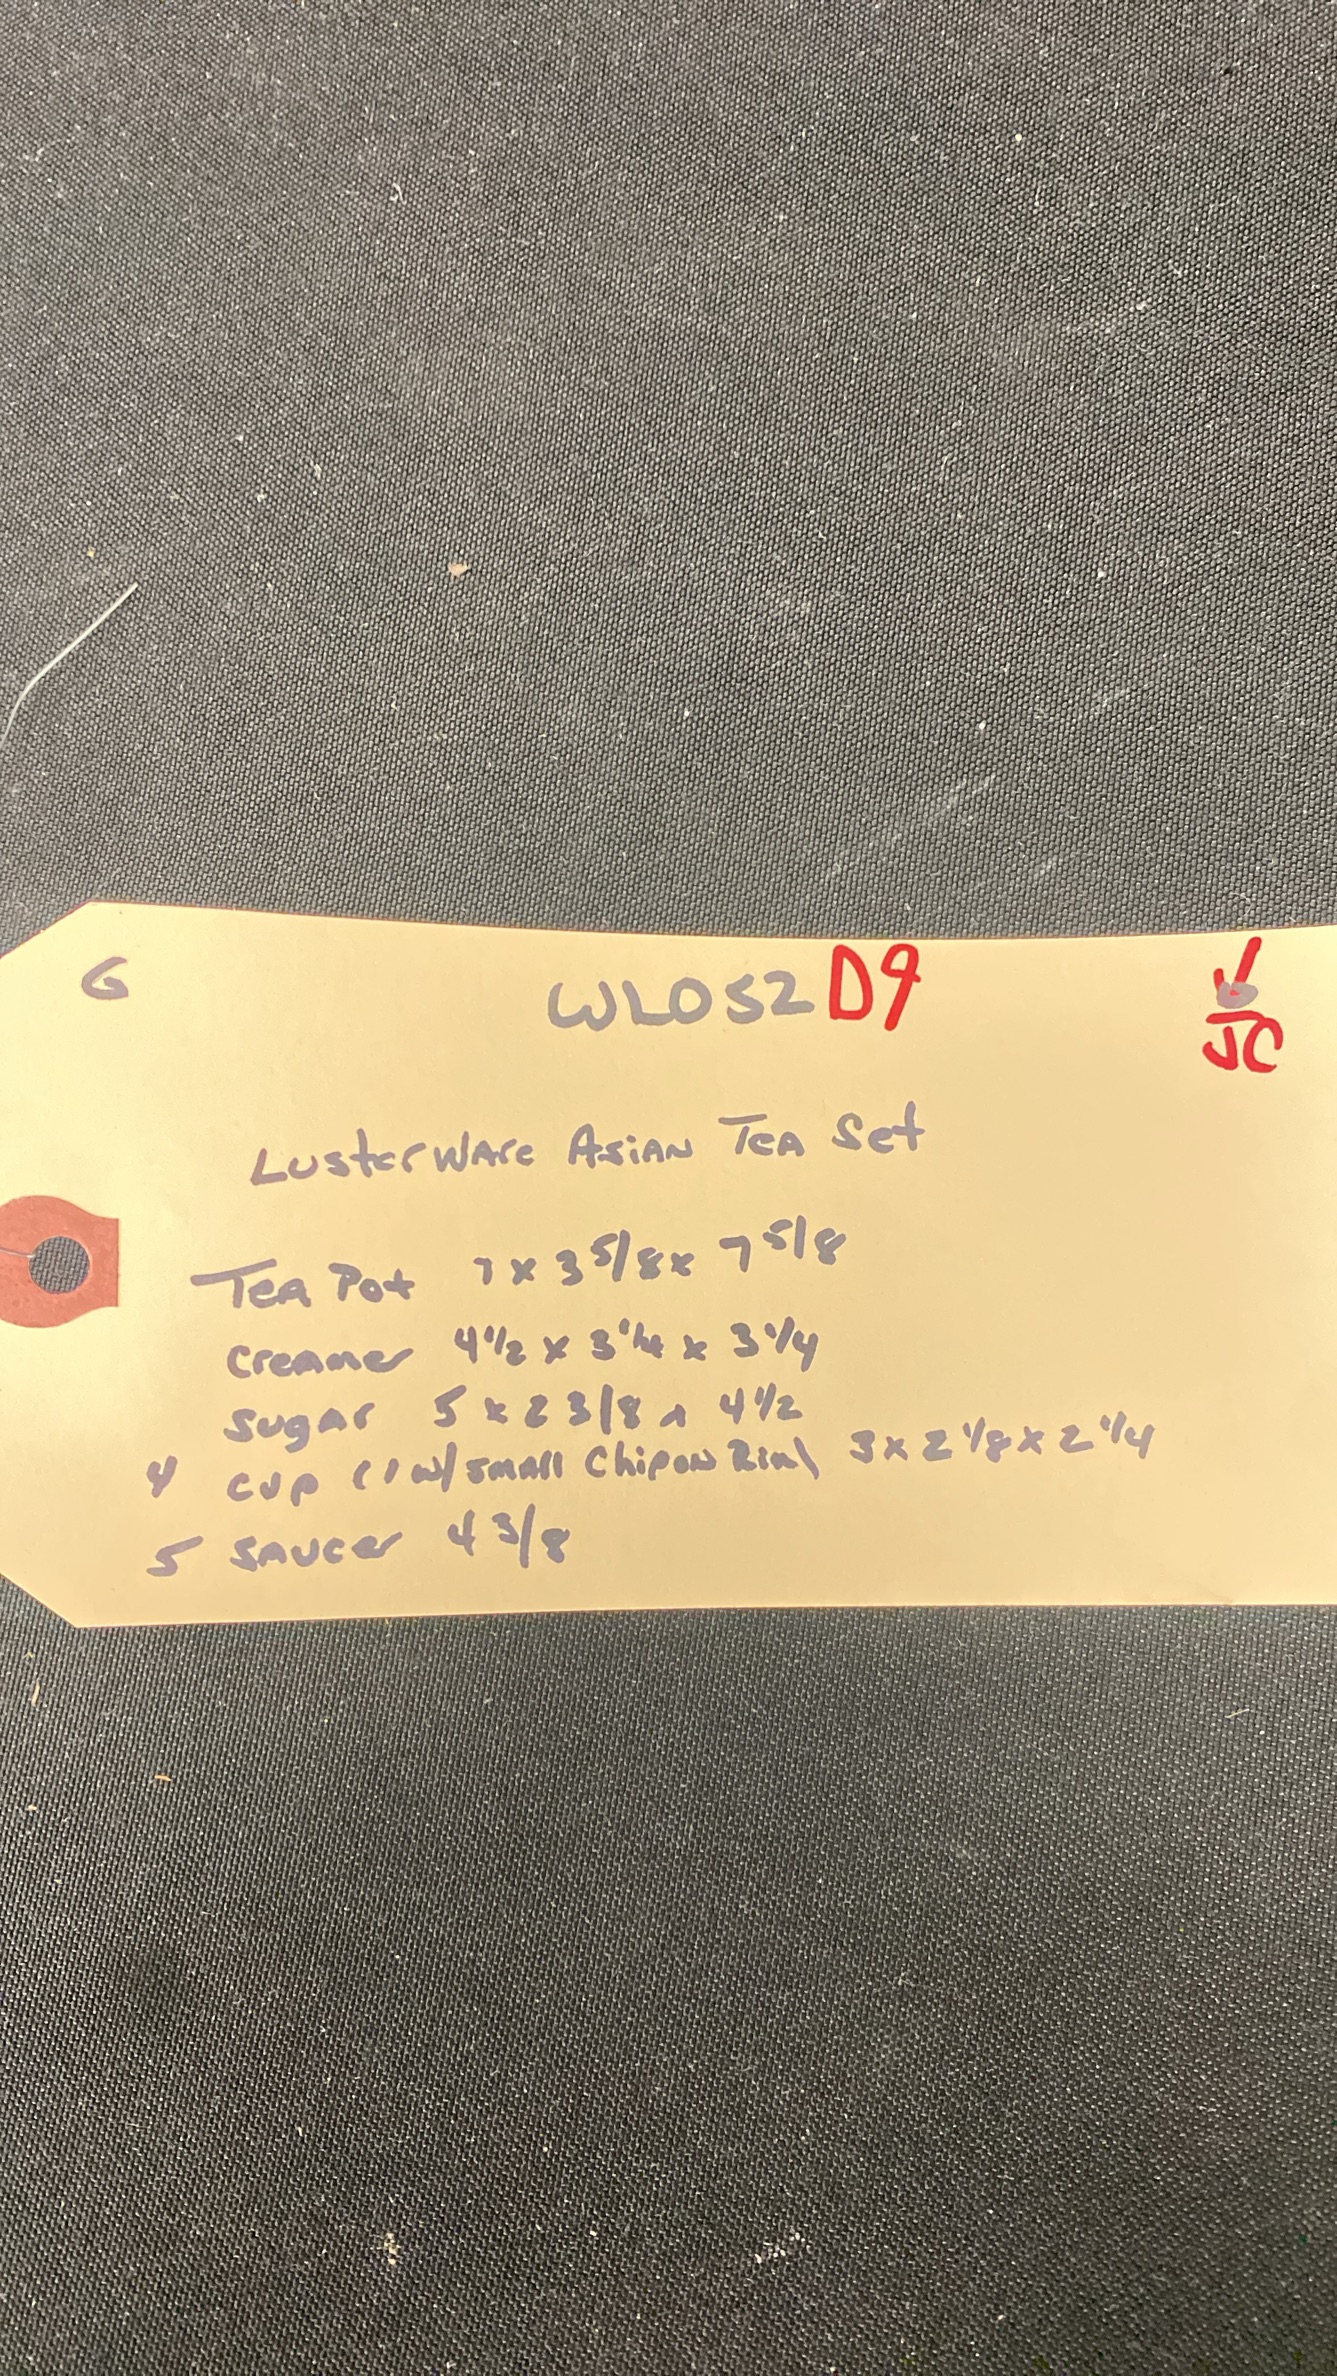 G
WL052 D9
JC
Lusterware Asian Tea Set
Tea Pot 7 x 3 5/8 x 7 5/8
Creamer 4 1/2 x x 3 1/4
Sugar 5 x 2 3/8 x 4 1/2
4 Cup (1 w/ small Chip on Rim) 3 x 2 1/8 x 2 1/4
5 Saucer 4 3/8